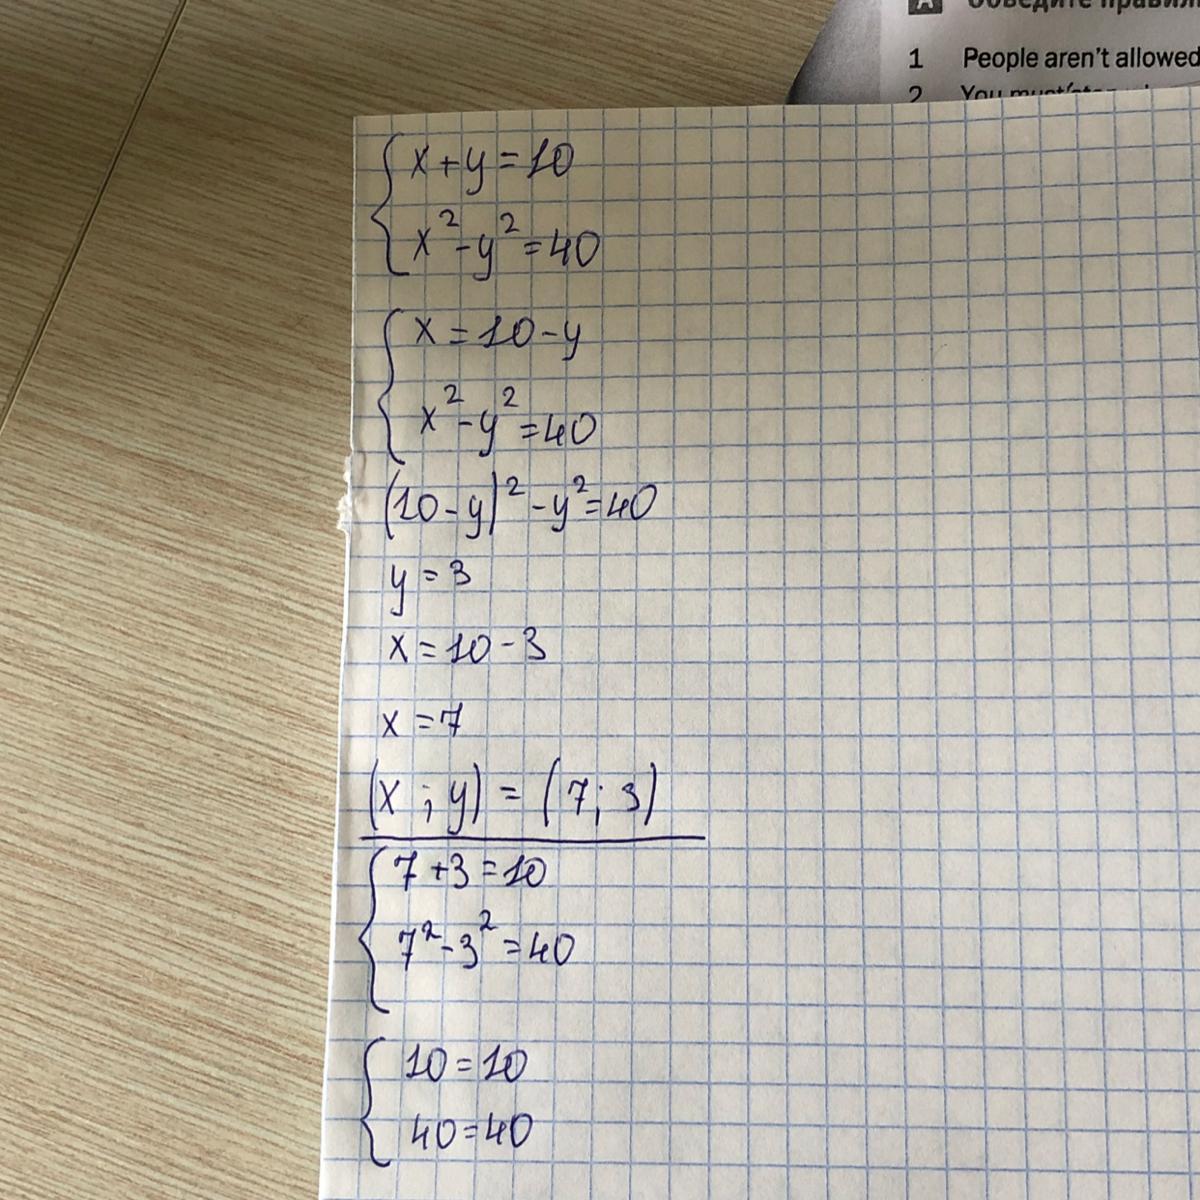 Обведите
1 People aren't allowed
2 You must
x+y=10
x²-y²=40
x=10-y
x²-y²=40
(10-y)²-y²=40
y=3
x=10-3
x=7
(x;y)=(7;3)
7+3=10
7²-3²=40
10=10
40=40